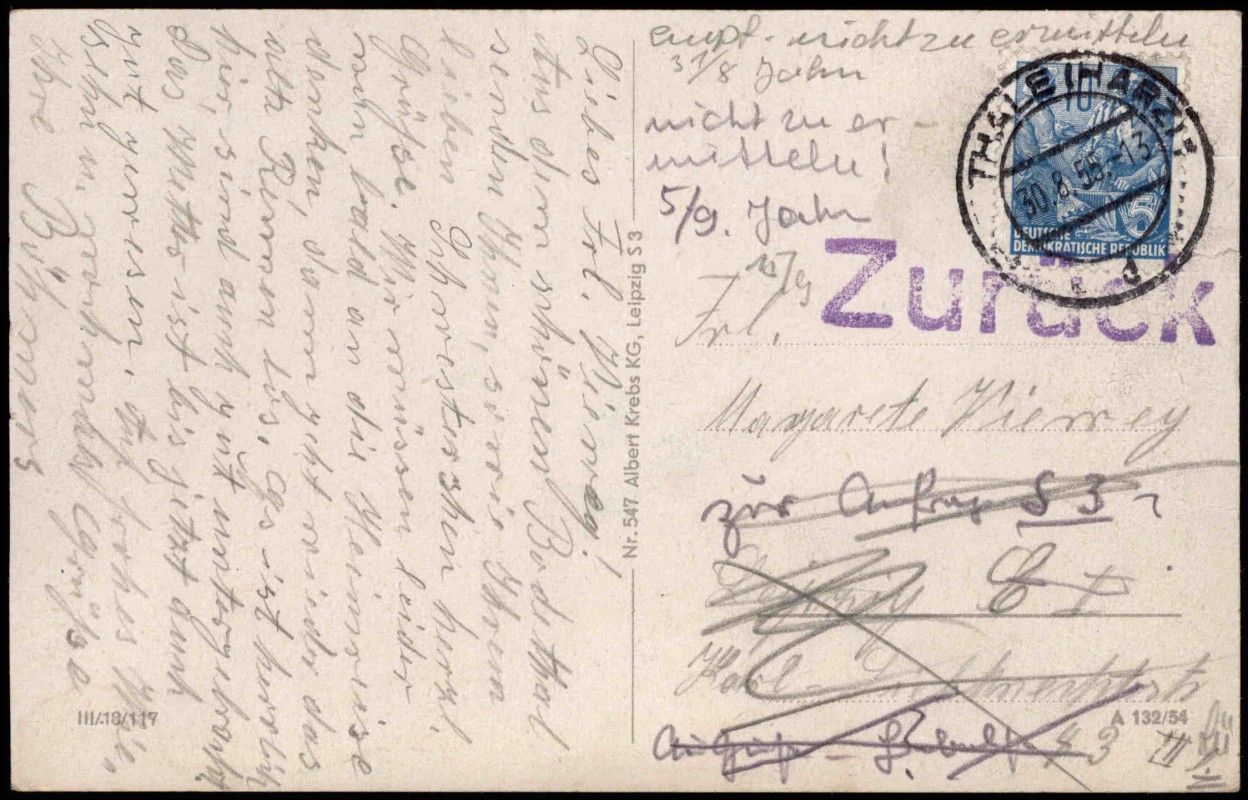 Liebes Frl. Vierreg!
Aus dem schönen Bodethal
senden Ihnen, sowie Ihrem
lieben Schwesterchen herzl.
Grüße. Wir müssen leider
nun bald an die Heimreise
denken, dann geht wieder das
alte Rennen los. Es ist herrlich
hier, sind auch gut untergebracht.
Das Wetter ist bis jetzt auch
gut gewesen. Auf frohes Wie-
dersehn u. recht herzl Grüße
Ihre
Nr. 547 Albert Krebs KG, Leipzig S 3
III/18/117
empf. nicht zu ermitteln
31/8 Jahn
nicht zu er-
mitteln!
5/9. Jahn
THALE (HARZ) 1
30.8.55.-13
d
10
5
DEUTSCHE
DEMOKRATISCHE REPUBLIK
Zurück
Frl.
Margarete Vierrey
zur Anfrage S 3
Leipzig C I
Karl-
43 III
A 132/54